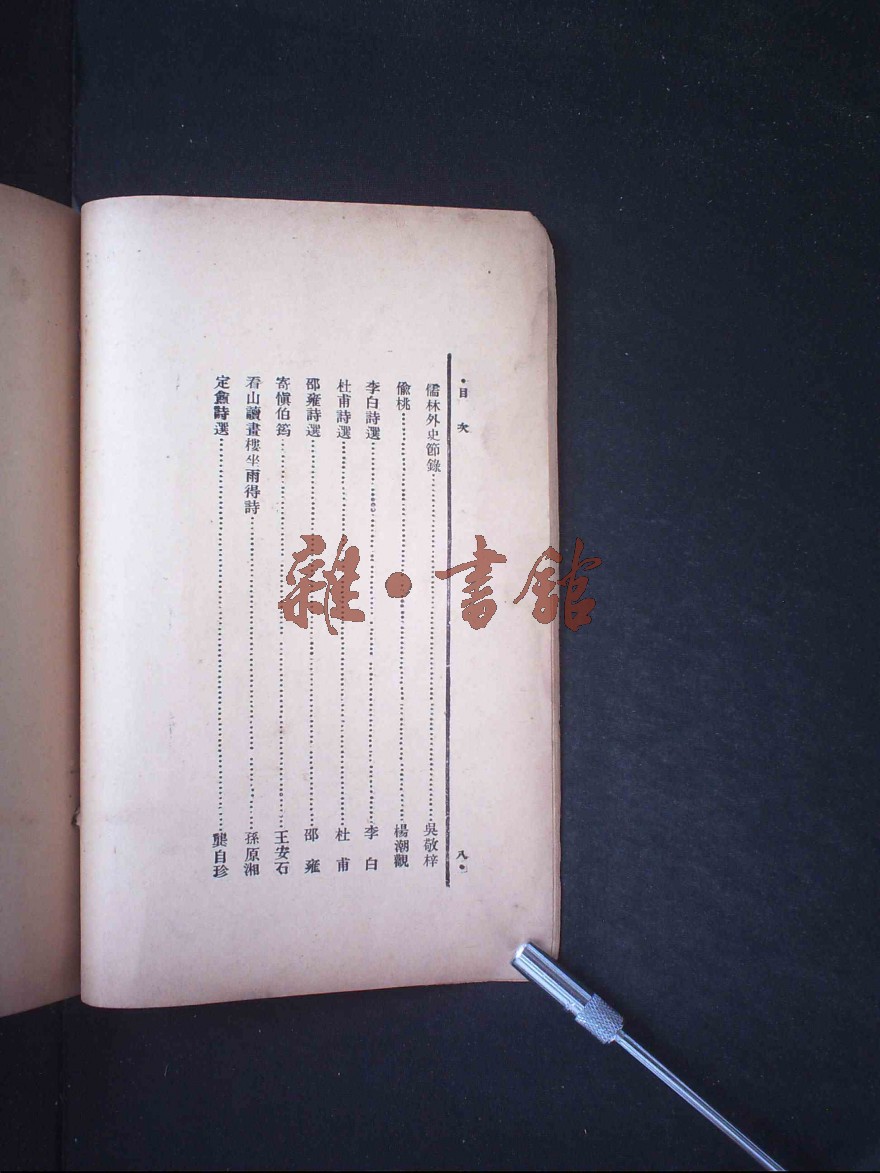 目次 八
儒林外史節錄……吳敬梓
偸桃……楊潮觀
李白詩選……李白
杜甫詩選……杜甫
邵雍詩選……邵雍
寄愼伯筠……王安石
看山讀畫樓坐雨得詩……孫原湘
定盦詩選……龔自珍
雜·書館